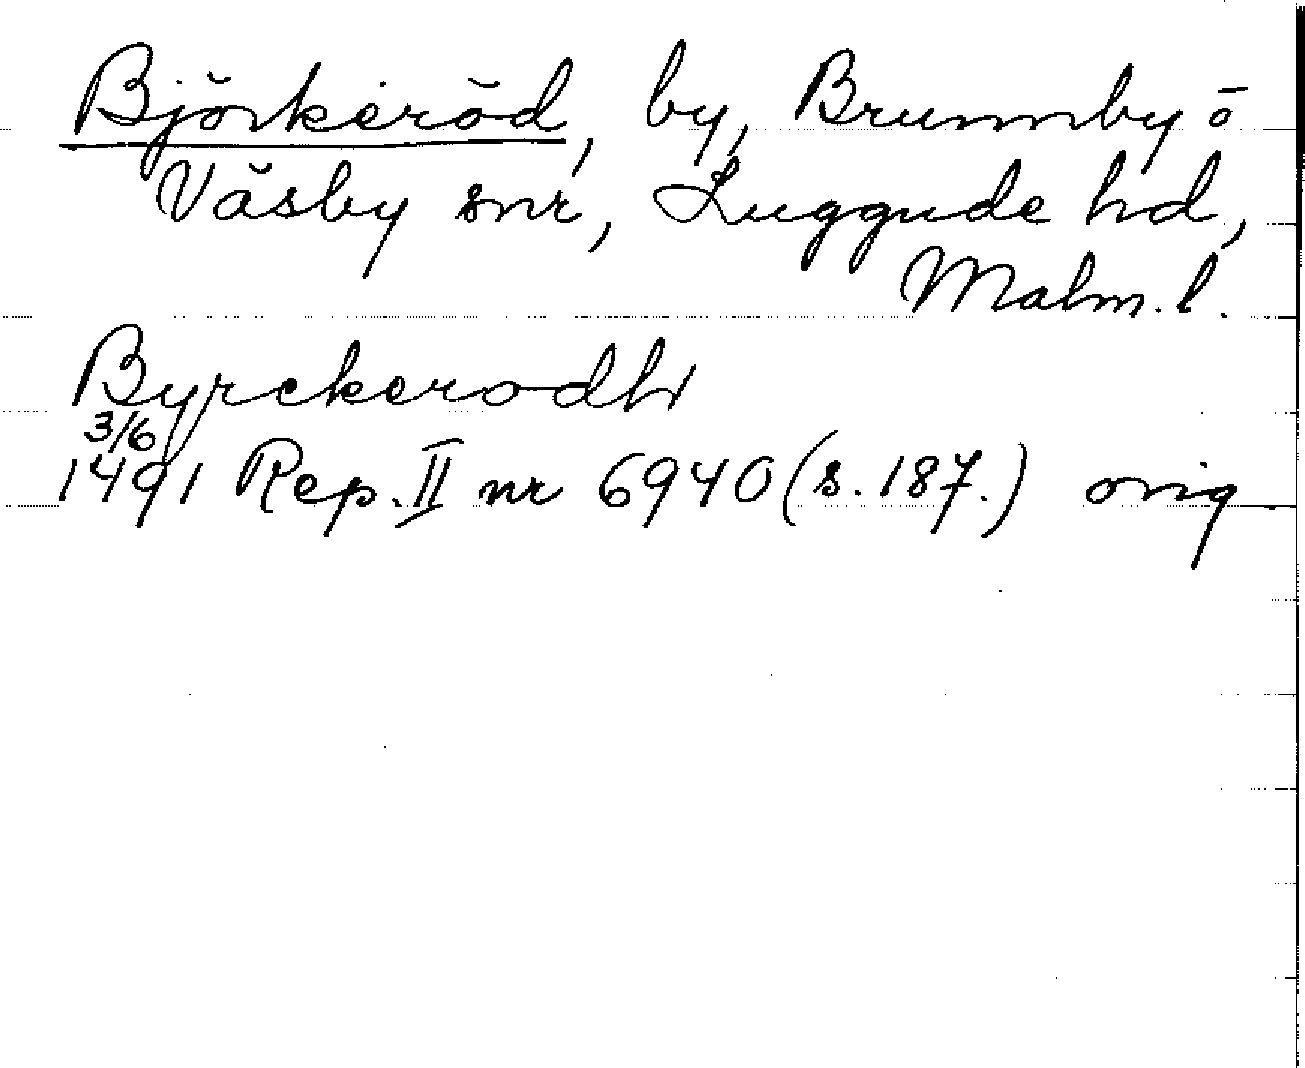 Björkeröd, by, Brunnby o
Väsby snr, Luggude hd,
Malm. l.
Byrckerodh
3/6
1491 Rep. II nr 6940 (s. 187.) orig